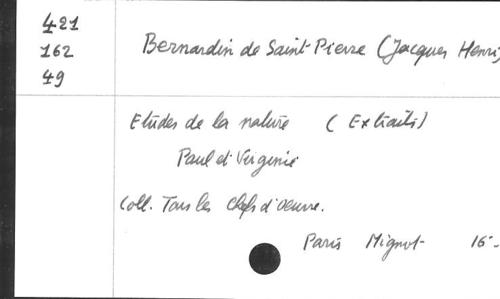 421
162
49
Bernardin de Saint-Pierre (Jacques Henri)
Etudes de la nature (Extraits)
Paul et Virginie
Coll. Tous les chefs d'oeuvre.
Paris Mignot 16-